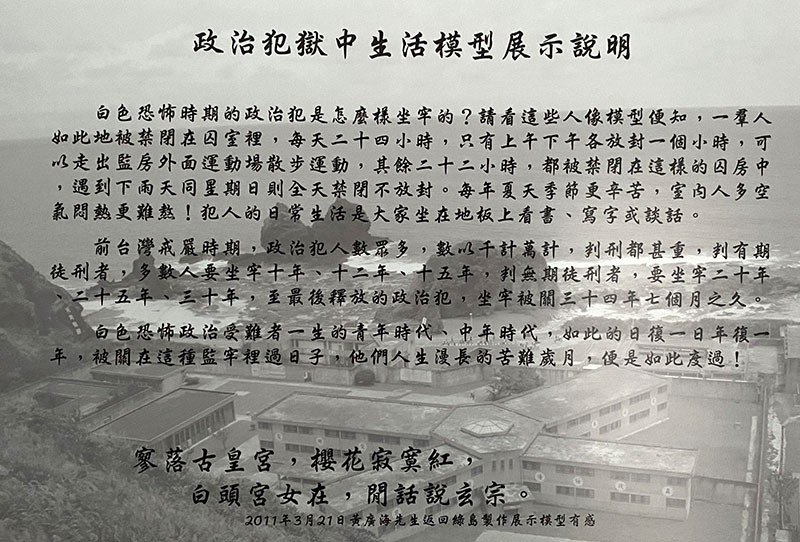 政治犯獄中生活模型展示說明
白色恐怖時期的政治犯是怎麼樣坐牢的？請看這些人像模型便知，一羣人
如此地被禁閉在囚室裡，每天二十四小時，只有上午下午各放封一個小時，可
以走出監房外面運動場散步運動，其餘二十二小時，都被禁閉在這樣的囚房中
，遇到下雨天同星期日則全天禁閉不放封。每年夏天季節更辛苦，室內人多空
氣悶熱更難熬！犯人的日常生活是大家坐在地板上看書、寫字或談話。
前台灣戒嚴時期，政治犯人數眾多，數以千計萬計，判刑都甚重，判有期
徒刑者，多數人要坐牢十年、十二年、十五年，判無期徒刑者，要坐牢二十年
、二十五年、三十年，至最後釋放的政治犯，坐牢被關三十四年七個月之久。
白色恐怖政治受難者一生的青年時代、中年時代，如此的日復一日年復一
年，被關在這種監牢裡過日子，他們人生漫長的苦難歲月，便是如此度過！
寥落古皇宮，櫻花寂寞紅，
白頭宮女在，閒話說玄宗。
2011年3月21日黃廣海先生返回綠島製作展示模型有感